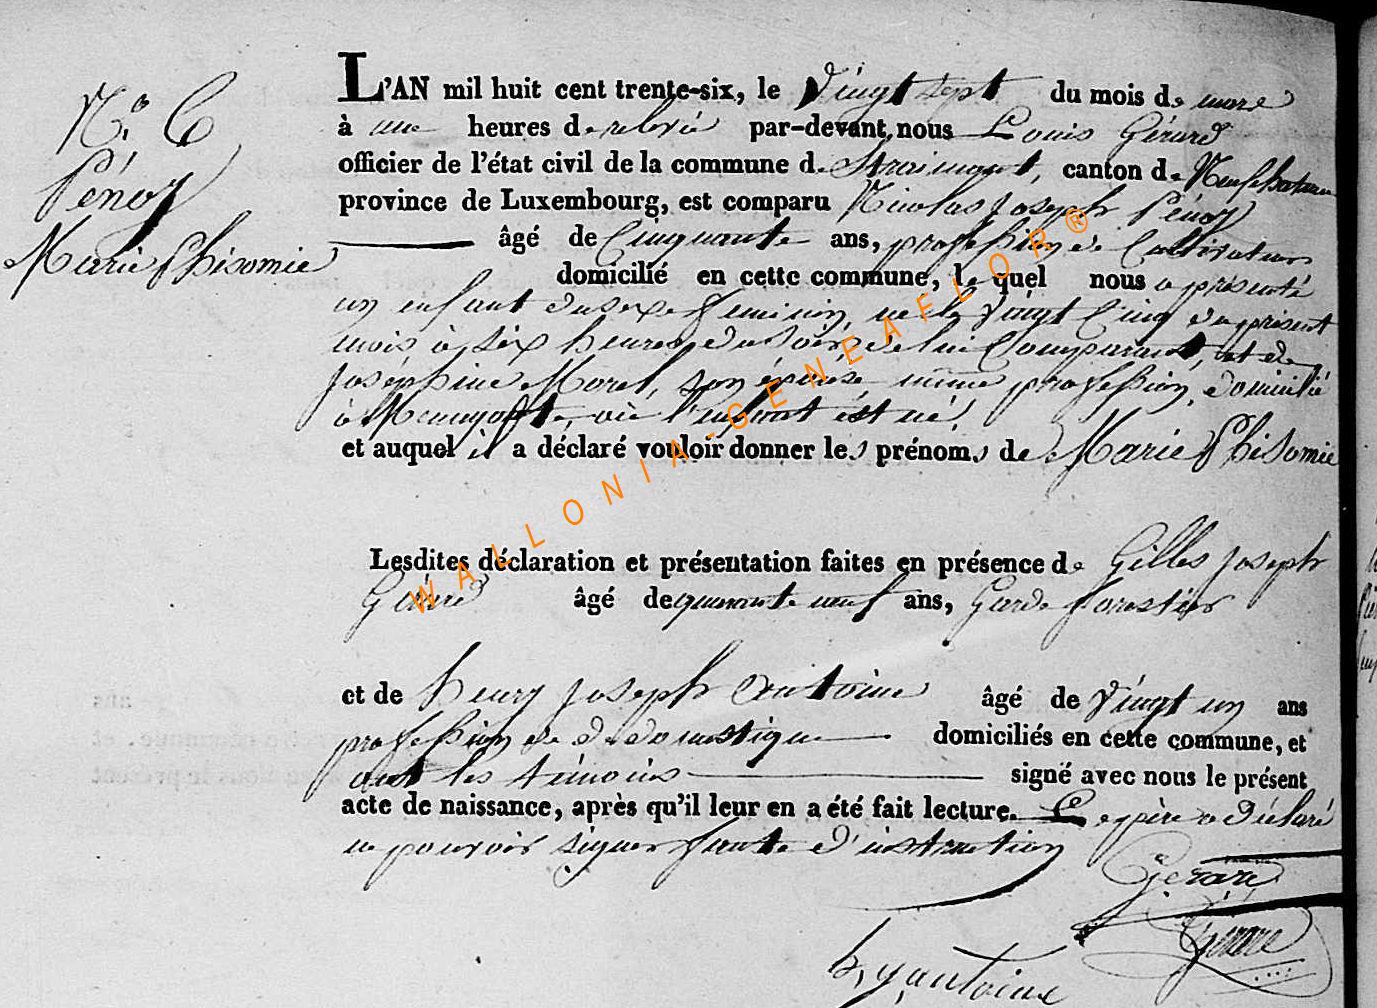 N.º 6
Pénoy
Marie Phisomie
L'AN mil huit cent trente-six, le vingt sept du mois de mars
à une heures de relevée par-devant nous Louis Gérard
officier de l'état civil de la commune de Straimont, canton de Neufchateau
province de Luxembourg, est comparu Nicolas Joseph Pénoy
âgé de Cinquante ans, profession de Cultivateur
domicilié en cette commune, lequel nous a présenté
un enfant du sexe feminin, né le vingt Cinq du présent
mois à six heures du soir, de lui Comparant, et de
Joséphine Morel, son épouse même profession, domicilié
à où l'enfant est né,
et auquel il a déclaré vouloir donner les prénoms de Marie Phisomie
Lesdites déclaration et présentation faites en présence de Gilles Joseph
Gérard âgé de quarante neuf ans, Garde forestier
et de henry Joseph Antoine âgé de vingt un ans
profession de domestique domiciliés en cette commune, et
ont les témoins signé avec nous le présent
acte de naissance, après qu'il leur en a été fait lecture. Le père a déclaré
ne pouvoir signer faute d'instruction
Gérard
Gérard
h, y, antoine
WALLONIA-GENEAFLOR®